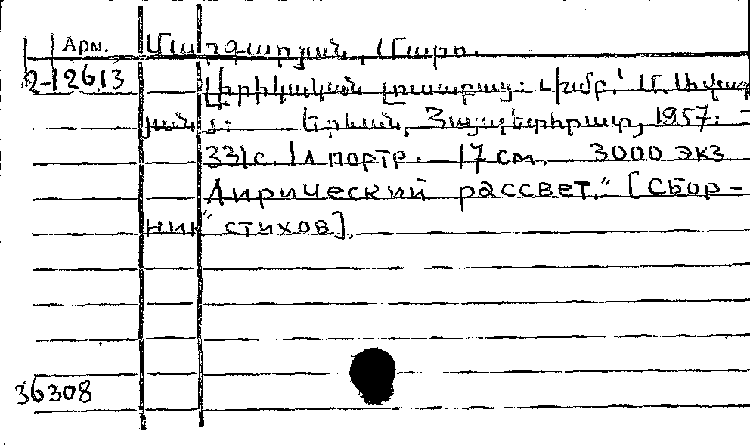 Арм. Մարգարյան, Մարո.
2-12613 Լիրիկական լուսաբաց: Խմբ.՝ Մ. Ավագ
յան է: Երևան, Հայպետհրատ, 1957.
331с. 1л портр. 17 см. 3000 экз
„Лирический рассвет.“ [Сбор-
ник стихов].
36308